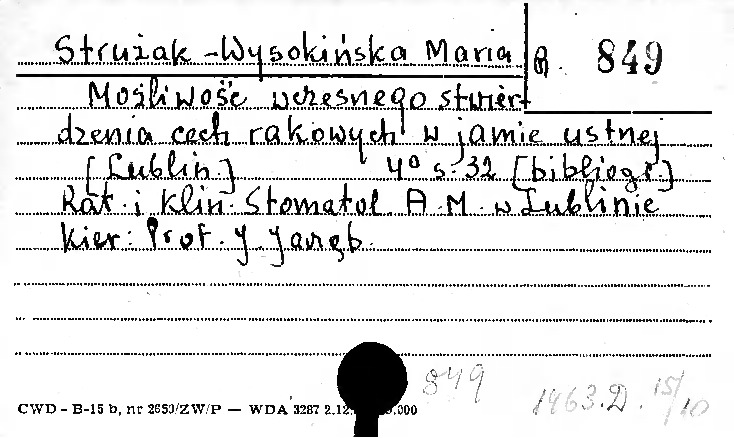 Strużak-Wysokińska Maria
849
Możliwość wczesnego stwier-
dzenia cech rakowych w jamie ustnej
[Lublin] 4° s. 32 [bibliogr.]
Kat. i Klin. Stomatol. A.M. w Lublinie
Kier: Prof. J. Jarząb.
849
1963.D. 15/10
CWD - B-15 b, nr 2650/ZW/P — WDA 3287 2.12. 0.000